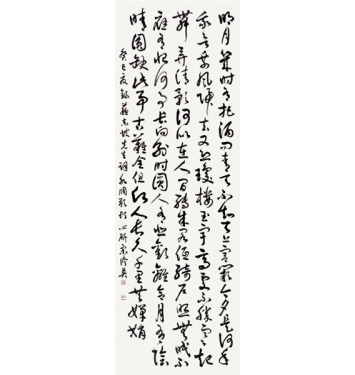 明月幾時有把酒問青天不知天上宮闕今夕是何年
我欲乘風歸去又恐瓊樓玉宇高處不勝寒起
舞弄清影何似在人間轉朱閣低綺戶照無眠不
應有恨何事長向別時圓人有悲歡離合月有陰
晴圓缺此事古難全但願人長久千里共嬋娟
癸巳夏錄蘇東坡先生詞水調歌頭